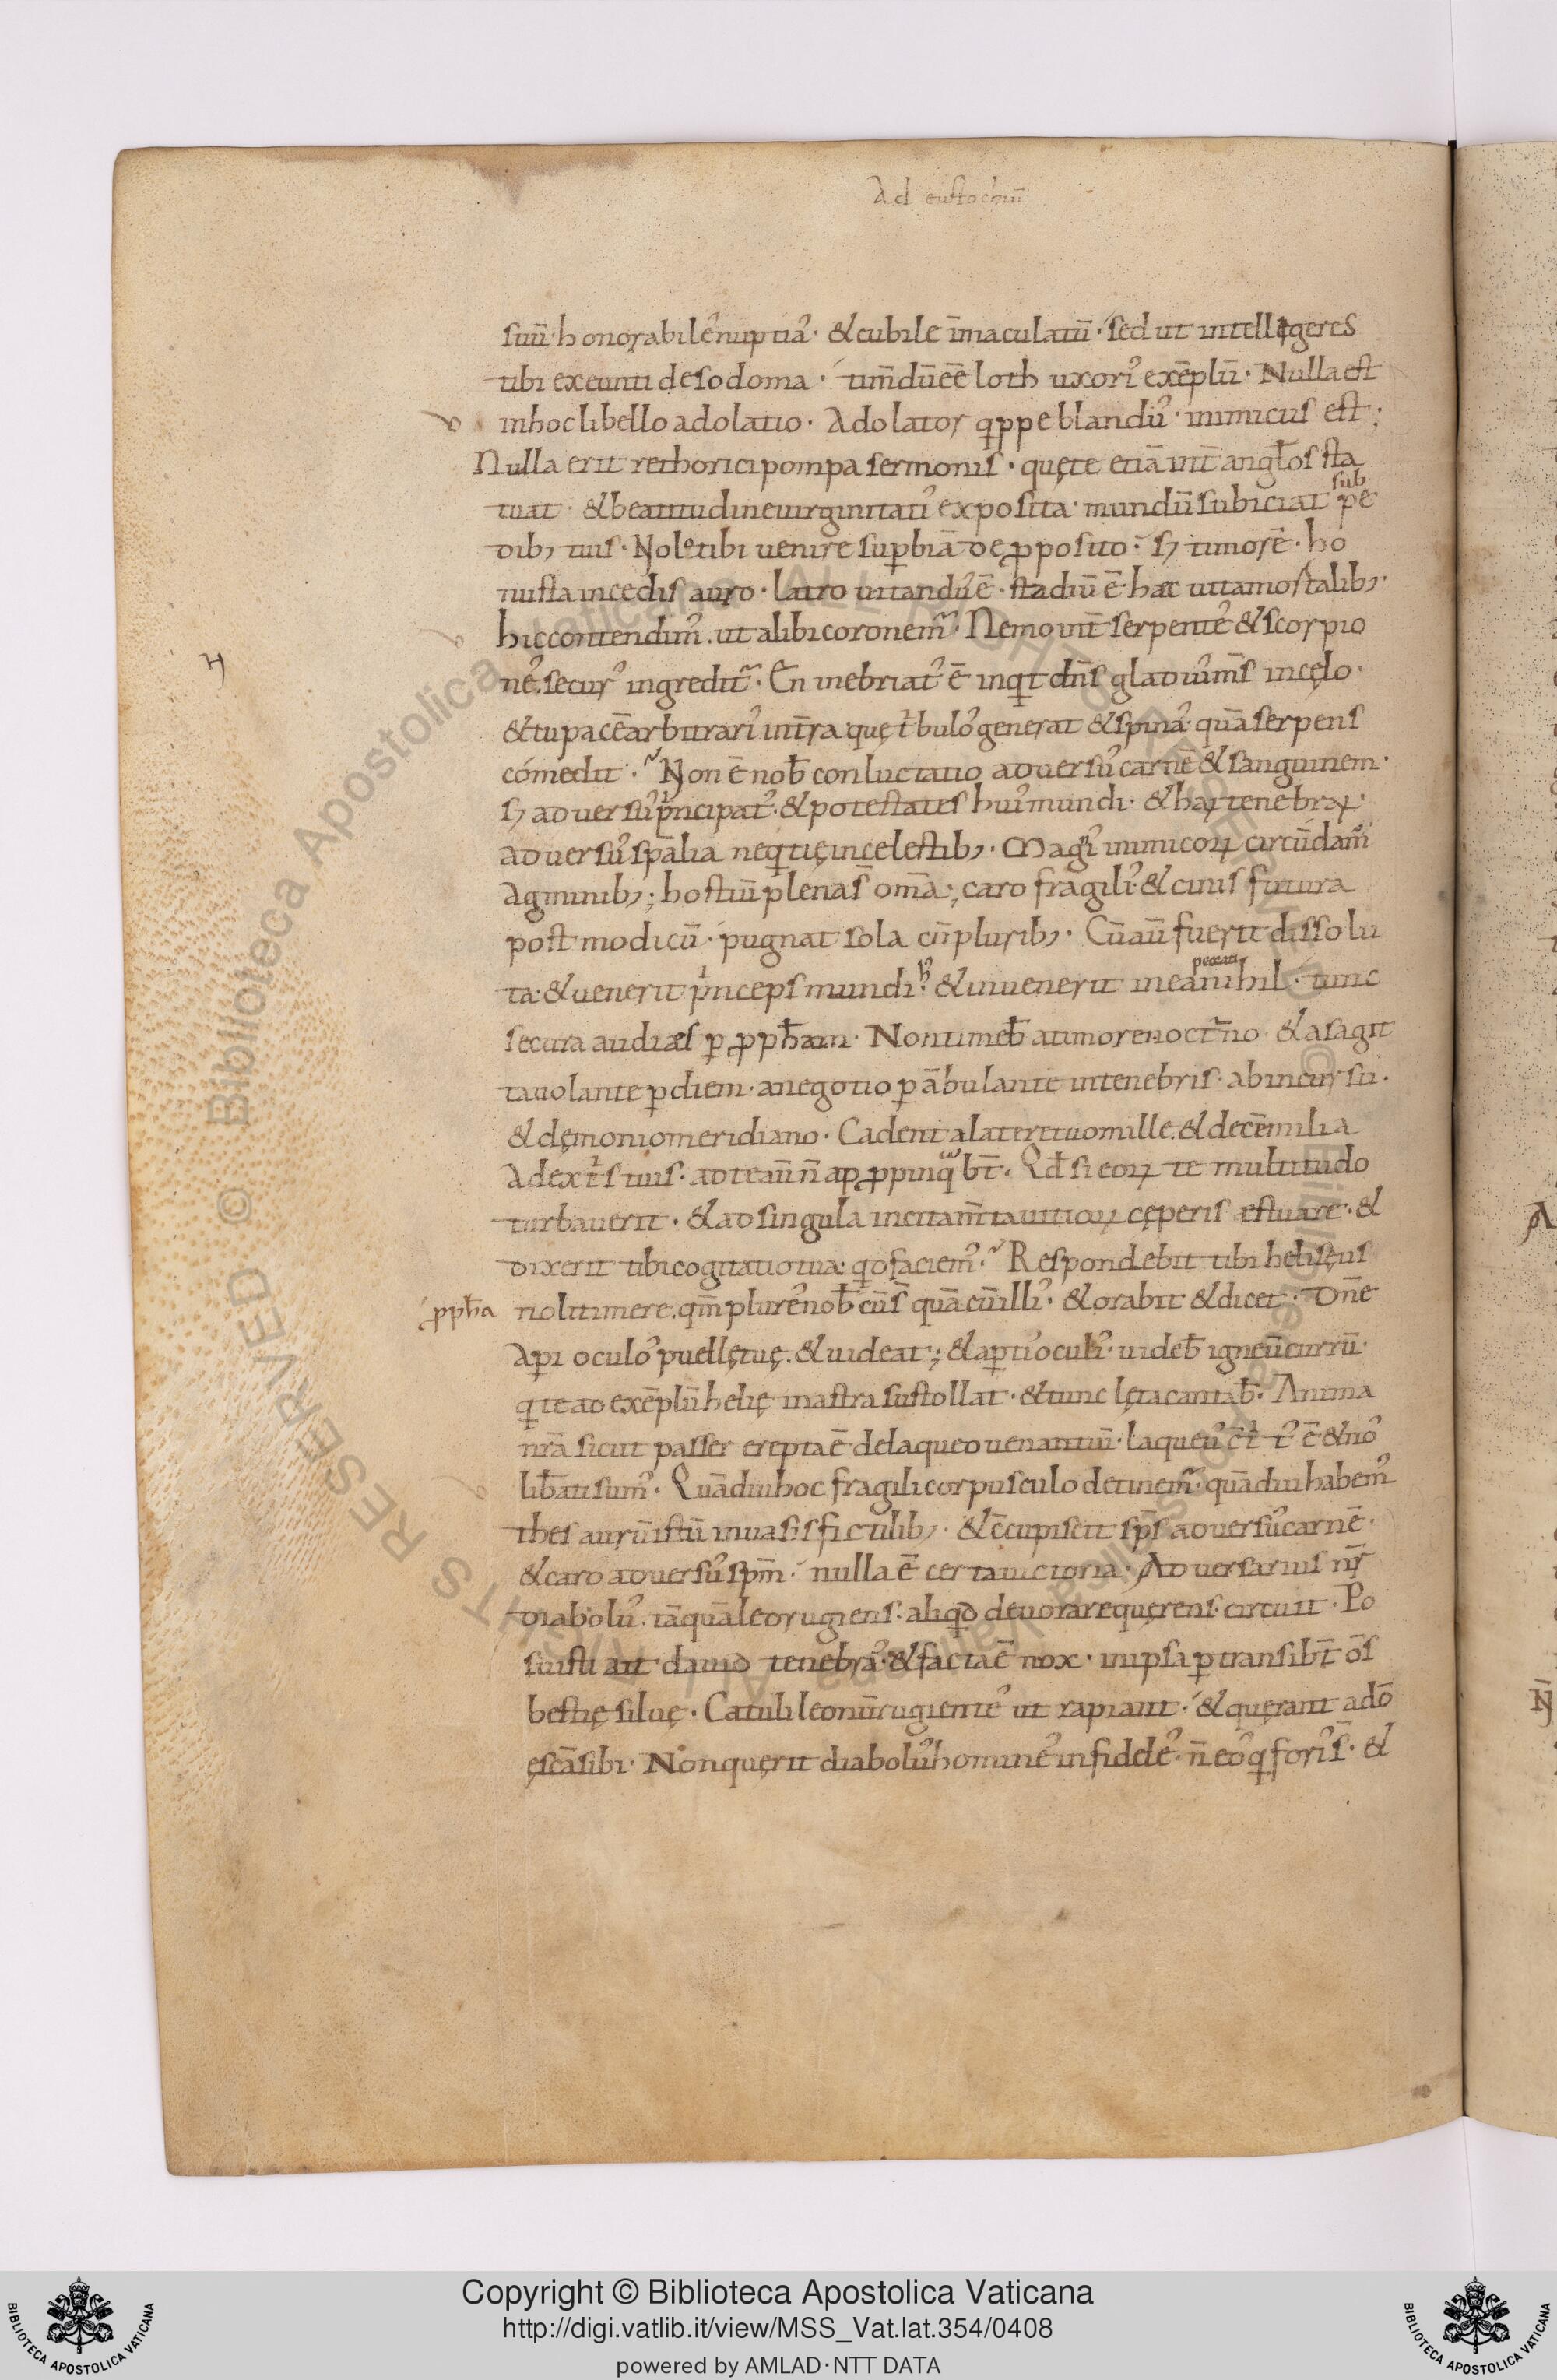 Ad eustochiū
suū· honorabile᾽ nuptia᾽· & cubile īmaculatū· sed ut intellegeres
tibi exeunti de sodoma· tim̄dū eē loth uxori᾽ exēplū· Nulla est
in hoc libello adolatio· Adolator qppe blandu᾽· inimicus est;
Nulla erit rethorici pompa sermonis· quę te etiā int̄ angl̄os sta
tuat· & beatitudine uirginitati᾽ exposita· mundū subiciat sub pe
dib; tuis· Nolo tibi uenire sup̱biā de p̱posito· s; timorē· ho
nusta incedis auro· latro uitandu᾽ ē· stadiū ē hæc uita mortalib;·
hic contendim᾽· ut alibi coronem᷑· Nemo int̄ serpente᾽ & scorpio
ne᾽ secur᾽ ingredit᷑· En inebriat᾽ ē inqt dn̄s gladiu᾽ m̄s in cęlo·
& tu pacē arbitrari᾽ in t̄ra quę tͥbulo᾽ generat & spina᾽· quā serpens
cómedit· Non ē nob̄ conluctatio aduersu᾽ carnē & sanguinem·
s; aduersu᾽ pͥncipat᾽· & potestates hui᾽ mundi· & haꝝ tenebraꝝ·
aduersu᾽ sp̄alia neqtię in celestib;· Magni᾽ inimicoꝝ circūdam᷑
agminib;; hostiū plena s̄ om̄a; caro fragili᾽· & cinis futura
post modicū· pugnat sola cū plurib;· Cū aū fuerit dissolu
ta· & uenerit pͥnceps mundi h᾽· & inuenerit in ea peccati nihil· tunc
secura audiæs p̱ p̱ph̄am· Non timeb̄ a timore noct᷑no· & a sagit
ta uolante p̱ diem· a negotio p̱ābulante in tenebris· ab incursu·
& dęmonio meridiano· Cadent a latere tuo mille· & decē milia
a dextͥs tuis· ad te aū n̄ ap̱p̱pinqͣbt̄· Qd̄ si eoꝝ te multitudo
turbauerit· & ad singula incitam̄ta uitioꝝ cęperis æstuare· &
dixerit tibi cogitatio tua· qd faciem᾽· Respondebit tibi heliseus
p̱ph̄a noli timere· qm̄ plure᾽ nob̄cū s̄ quā cū illi᾽· & orabit & dicet· Dn̄e
api oculo᾽ puellę tuę· & uideat; & ap̱ti᾽ oculi᾽· uideb̄ igneū currū·
q te ad exēplū helię in astra sustollat· & tunc lęta cantab̄· Anima
nr̄a sicut passer erepta ē de laqueo uenantiū· laqueu᾽ c̄tͥt᾽ ē & no᾽
lib̄ati sum᾽· Quādiu hoc fragili corpusculo detinem᷑· quādiu habem᾽
thesaurū istū in uasis fictilib;· & c̄cupiscit sp̄s aduersu᾽ carnē·
& caro aduersu᾽ sp̄m· nulla ē certa uictoria· Aduersarius nr̄
diabolu᾽· tāquā leo rugiens· aliqd deuorare quęrens· circuit· Po
suisti ait dauid tenebra᾽· & facta ē nox· in ipsa p̱transibt̄ ōs
bestię siluę· Catuli leonū rugiente᾽ ut rapiant· & quęrant a dō
ęscā sibi· Non quęrit diabolu᾽ homine᾽ infidele᾽· n̄ eo᾽ q fori᾽ s̄· &